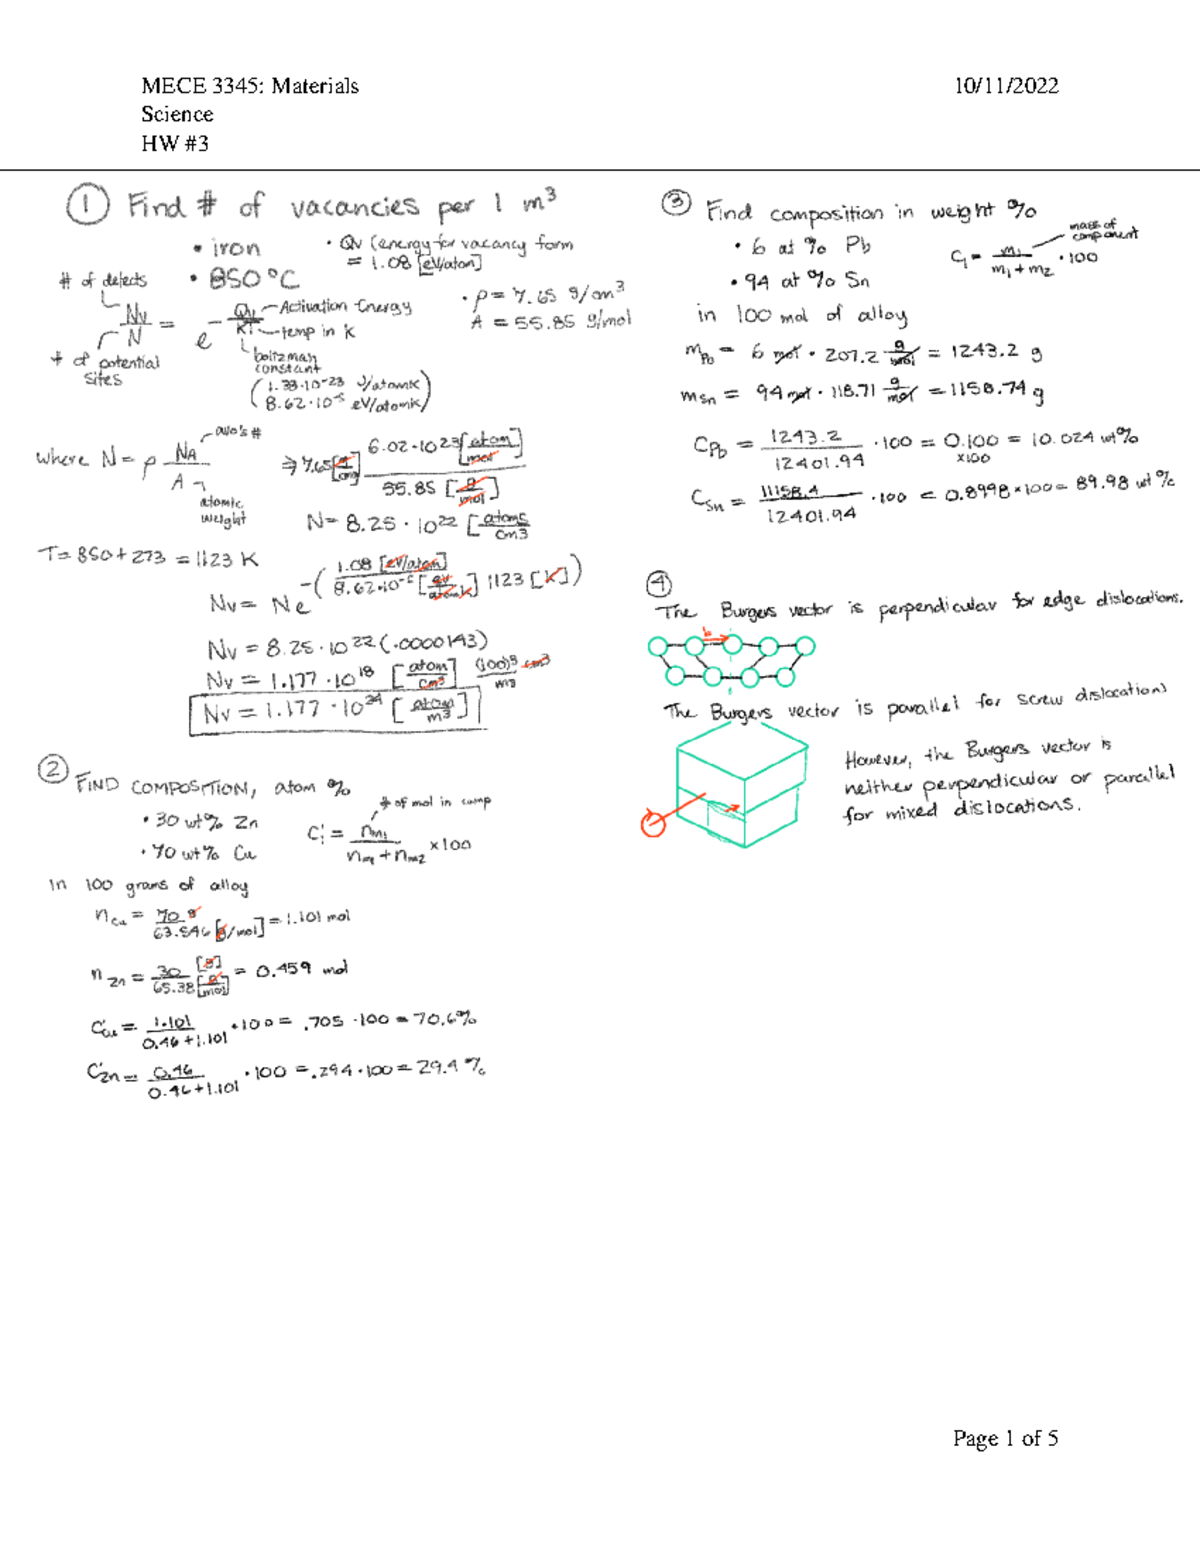 MECE 3345: Materials
Science
HW #3
10/11/2022
① Find # of vacancies per 1 m³
• iron
• 850 °C
• Qv (energy for vacancy form
= 1.08 [eV/atom]
• ρ = 7.65 g/cm³
A = 55.85 g/mol
# of defects
Nv/N = e^-(Qv/KT)
Activation Energy
temp in K
boltzman
constant
(1.38·10⁻²³ J/atomK
8.62·10⁻⁵ eV/atomK)
# of potential
sites
where N = ρ NA/A
avo's #
atomic
weight
⇒ 7.65 [g/cm³] 6.02·10²³ [atom/mol] / 55.85 [g/mol]
N = 8.25 · 10²² [atoms/cm³]
T = 850 + 273 = 1123 K
Nv = N e^-(1.08 [eV/atom] / 8.62·10⁻⁵ [eV/atomK] 1123 [K])
Nv = 8.25 · 10²² (.0000143)
Nv = 1.177 · 10¹⁸ [atom/cm³] (100)³ cm³/m³
Nv = 1.177 · 10²⁴ [atom/m³]
② FIND COMPOSITION, atom %
• 30 wt% Zn
• 70 wt% Cu
# of mol in comp
C₁' = nm₁ / (nm₁ + nm₂) × 100
In 100 grams of alloy
nCu = 70 g / 63.546 [g/mol] = 1.101 mol
nZn = 30 [g] / 65.38 [g/mol] = 0.459 mol
C'Cu = 1.101 / (0.46 + 1.101) · 100 = .705 · 100 = 70.6%
C'Zn = 0.46 / (0.46 + 1.101) · 100 = .294 · 100 = 29.4 %
③ Find composition in weight %
• 6 at % Pb
• 94 at % Sn
mass of
component
C₁ = m₁ / (m₁ + m₂) · 100
in 100 mol of alloy
mPb = 6 mol · 207.2 g/mol = 1243.2 g
mSn = 94 mol · 118.71 g/mol = 1158.74 g
CPb = 1243.2 / 12401.94 · 100 = 0.100 = 10.024 wt%
×100
CSn = 11158.4 / 12401.94 · 100 = 0.8998 × 100 = 89.98 wt %
④
The Burgers vector is perpendicular for edge dislocations.
b
The Burgers vector is parallel for screw dislocations
However, the Burgers vector is
neither perpendicular or parallel
for mixed dislocations.
Page 1 of 5